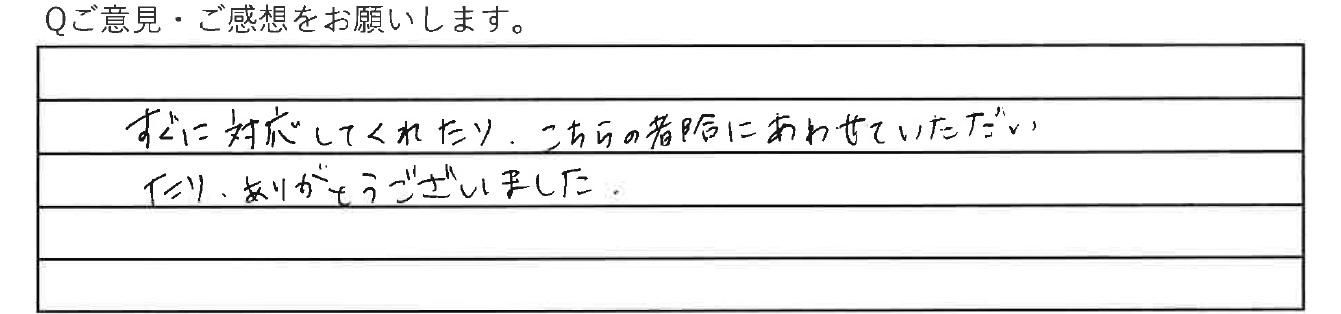 Qご意見・ご感想をお願いします。
すぐに対応してくれたり、こちらの都合にあわせていただい
たり、ありがとうございました。